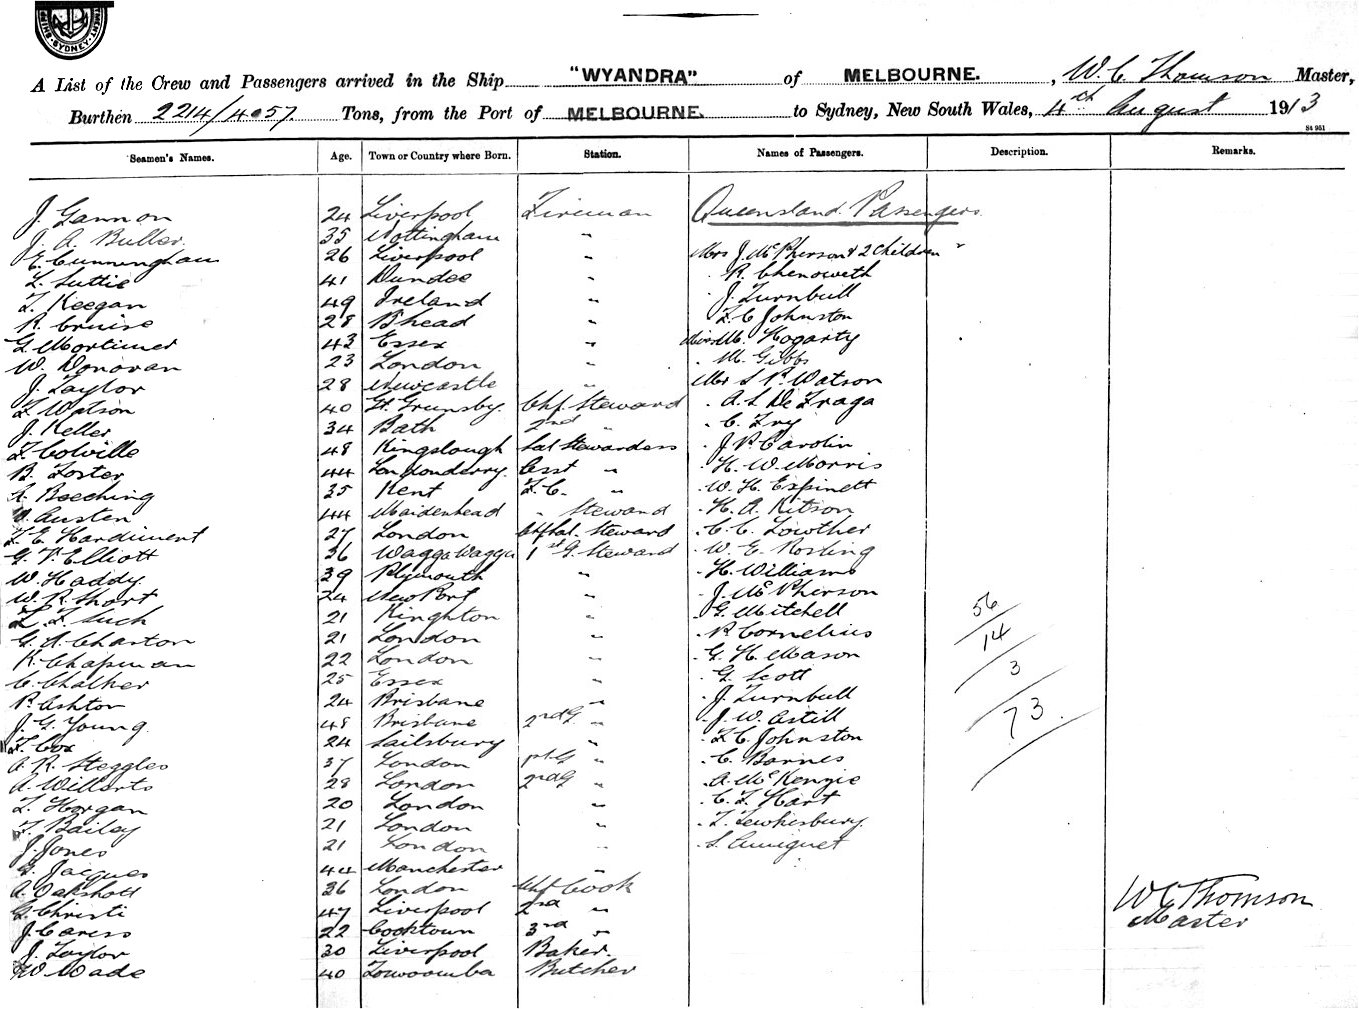 SYDNEY
A List of the Crew and Passengers arrived in the Ship "WYANDRA" of MELBOURNE. , W. C. Thomson Master,
Burthen 2214/4057 Tons, from the Port of MELBOURNE. to Sydney, New South Wales, 4th August 1913
St 951
Seamen's Names. Age. Town or Country where Born. Station. Names of Passengers. Description. Remarks.
J. Gannon 24 Liverpool Fireman Queensland Passengers.
J. A. Buller 35 Nottingham "
E. Cunningham 26 Liverpool " Mrs J. McPherson & 2 Children
F. Suttie 41 Dundee " R. Chenoweth
T. Keegan 49 Ireland " J. Turnbull
R. Cruise 28 B'head " F. C. Johnston
G. Mortimer 43 Essex " Miss M. Hogarty
W. Donovan 23 London " M. Gibbs
J. Taylor 28 Newcastle " Mr S. P. Watson
F. Watson 40 Gt. Grimsby. Chf. Steward A. S. De Fraga
J. Keller 34 Bath 2nd " C. Fry
F. Colville 48 Kingslough Sal Stewardess J. P. Carolin
B. Foster 44 Londonderry. Asst " H. W. Morris
A. Beeching 35 Kent F. C. " W. H. Espinett
Austen 44 Maidenhead " Steward H. A. Kitson
F. E. Hardiment 27 London Chf Sal. Steward C. C. Lowther
G. F. Elliott 36 Wagga Wagga 1st G. Steward W. E. Rosling
W. Haddy. 39 Plymouth " H. Williams
W. R. Short 24 New Port " J. McPherson
F. Such 21 Kington " G. Mitchell 56
G. A. Charton 21 London " R. Cornelius 14
K. Chapman 22 London " G. H. Mason 3
C. Chalker 25 Essex " G. Scott
P. Ashton 24 Brisbane " J. Turnbull 73.
J. G. Young. 48 Brisbane 2nd G. " J. W. Astill
F. Cox 24 Sailsbury " F. C. Johnston
A. R. Steggles 37 London " C. Barnes
A. Willerts 28 London 2nd G " A. McKenzie
F. Horgan 20 London " C. F. Hart
F. Bailey 21 London " F. Tewkesbury.
J. Jones 21 London " S.
G. Jacques 44 Manchester "
A. Oakshott 36 London Chf Cook
G. Christi 47 Liverpool 2nd " W C Thomson
J. Caress 22 Cooktown 3rd " Master
J. Taylor 30 Liverpool Baker.
W. Wade 40 Towoomba Butcher